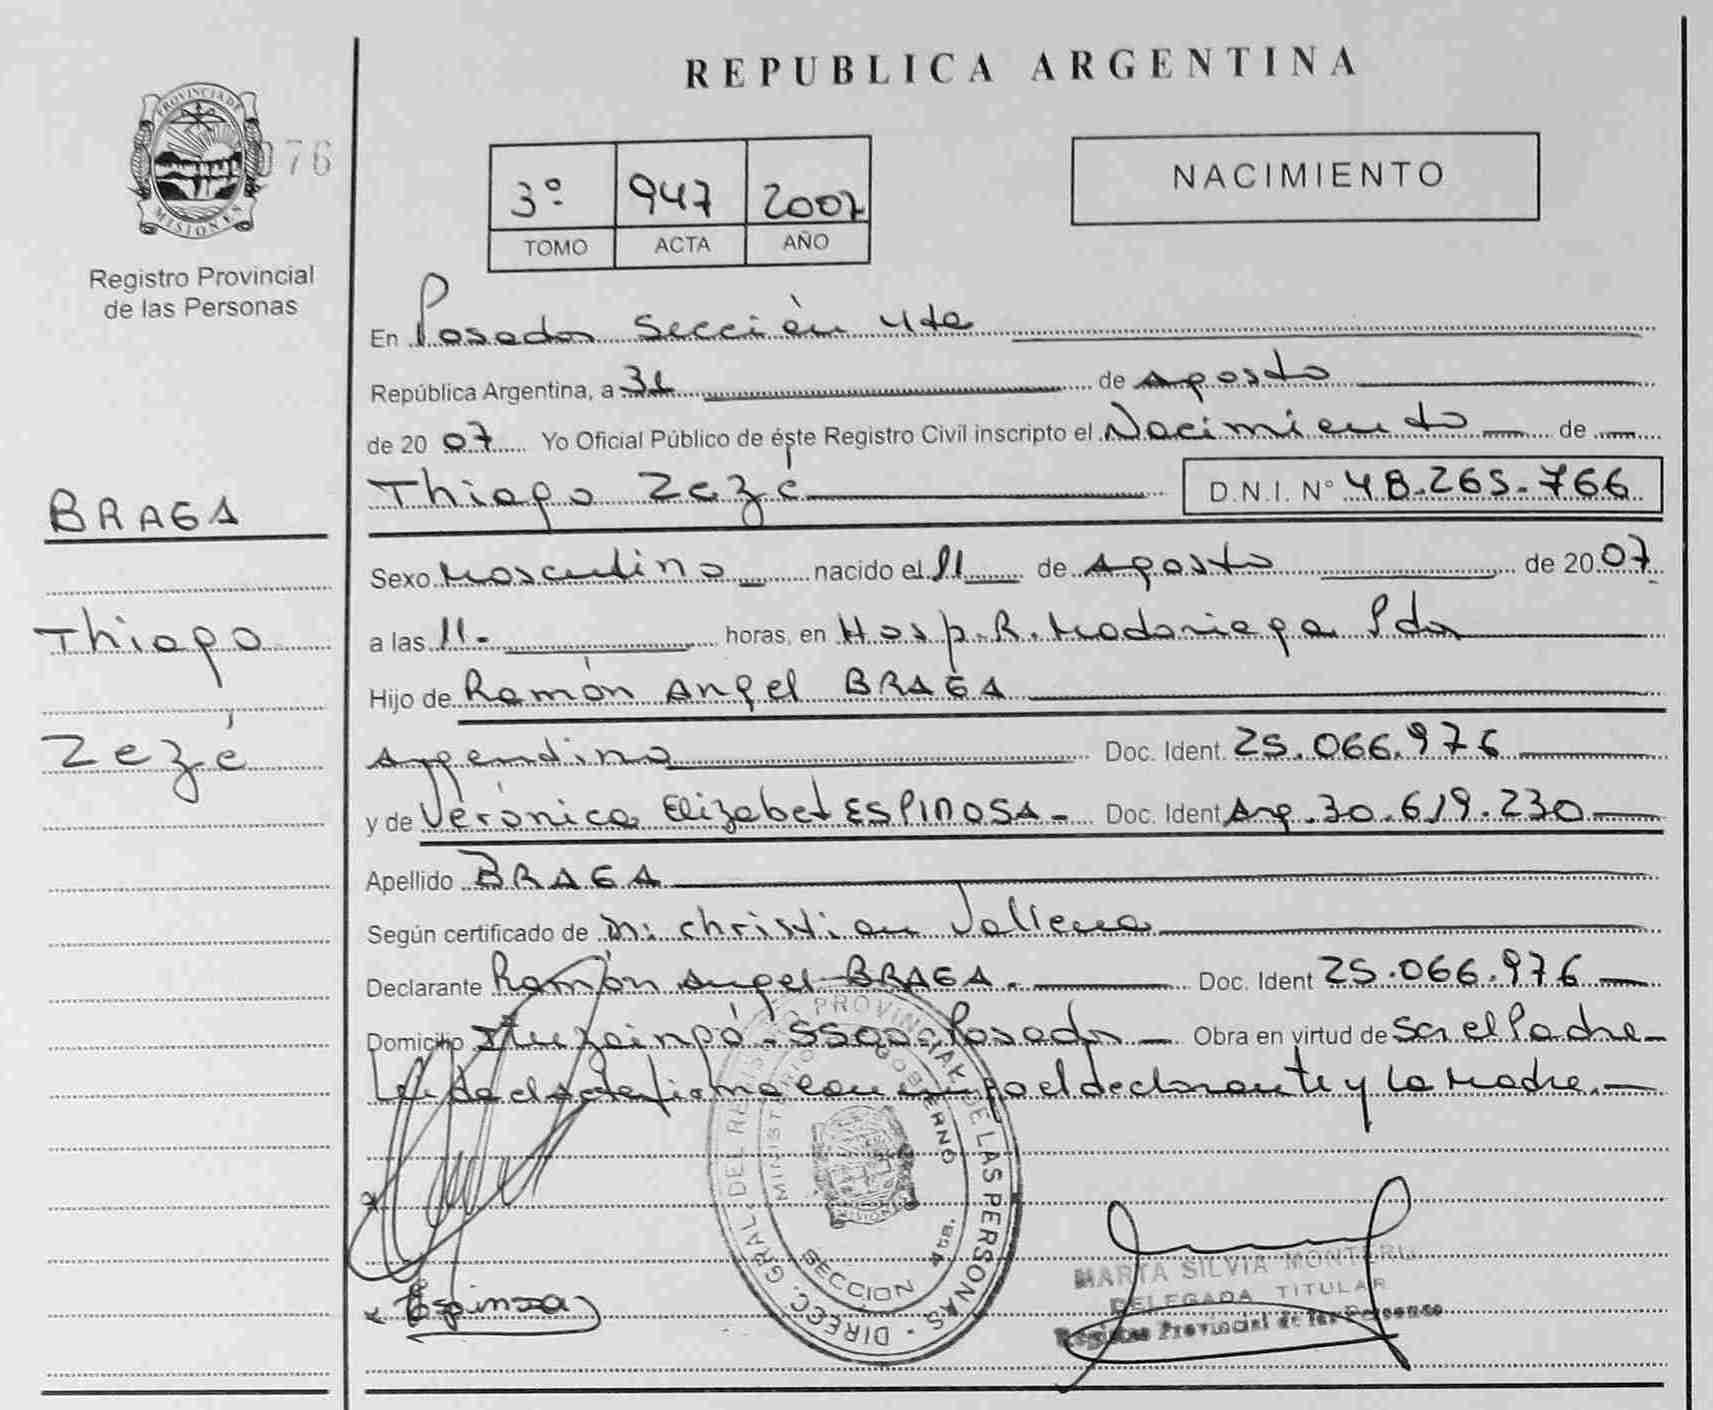 REPUBLICA ARGENTINA
PROVINCIA DE
MISIONES
076
Registro Provincial
de las Personas
3º 947 2007
TOMO ACTA AÑO
NACIMIENTO
En Posadas Sección 4ta
República Argentina, a 31 de Agosto
de 20 07 Yo Oficial Público de éste Registro Civil inscripto el Nacimiento de
Thiago Zezé D.N.I. Nº 48.265.766
BRAGA
Thiago
Zezé
Sexo Masculino nacido el 11 de Agosto de 20 07
a las 11.- horas, en Hosp. R. Madariaga Pdas
Hijo de Ramón Angel BRAGA
Argentino Doc. Ident. 25.066.976
y de Verónica Elizabet ESPINOSA.- Doc. Ident Arg. 30.619.230
Apellido BRAGA
Según certificado de Dr: Christian
Declarante Ramón Angel BRAGA.- Doc. Ident 25.066.976
Domicilio Ituzaingó 5500 Posadas Obra en virtud de Ser el Padre
Leída el acta firma conmigo el declarante y la Madre.-
DIRECC. GRAL. DEL REGISTRO PROVINCIAL DE LAS PERSONAS
MINISTERIO GOBIERNO
MISIONES
SECCION 4ta.
Espinosa
MARTA SILVIA
DELEGADA TITULAR
Registro Provincial de las Personas